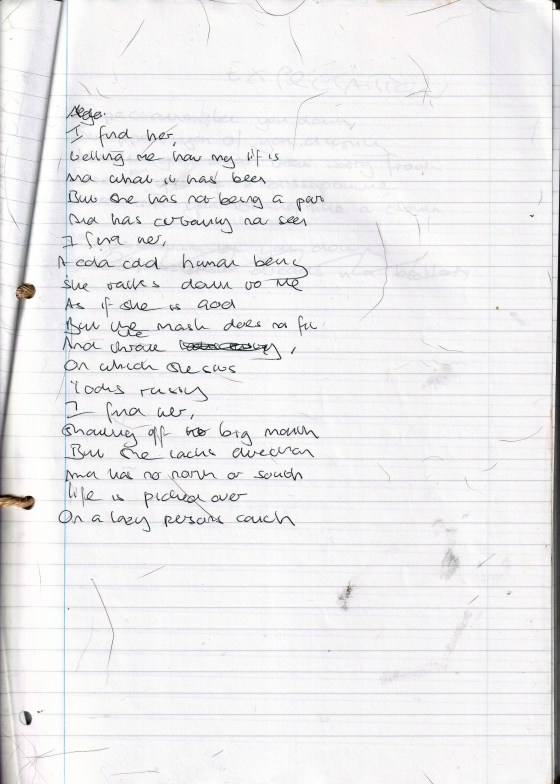 I find her,
telling me how my life is
And what it has been
But she has not being a part
And has certainly not seen
I find her,
A cold cold human being
She talks down to me
As if she is God
But the mask does not fit
And the throne,
On which she sits
Looks rusty
I find her,
Showing off big mouth
But she lacks direction
And has no north or south
Life is picked over
On a lazy persons couch